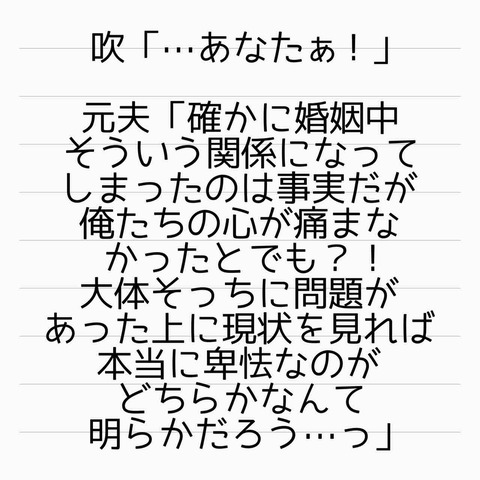 吹「…あなたぁ！」
元夫「確かに婚姻中
そういう関係になって
しまったのは事実だが
俺たちの心が痛まな
かったとでも？！
大体そっちに問題が
あった上に現状を見れば
本当に卑怯なのが
どちらかなんて
明らかだろう…っ」